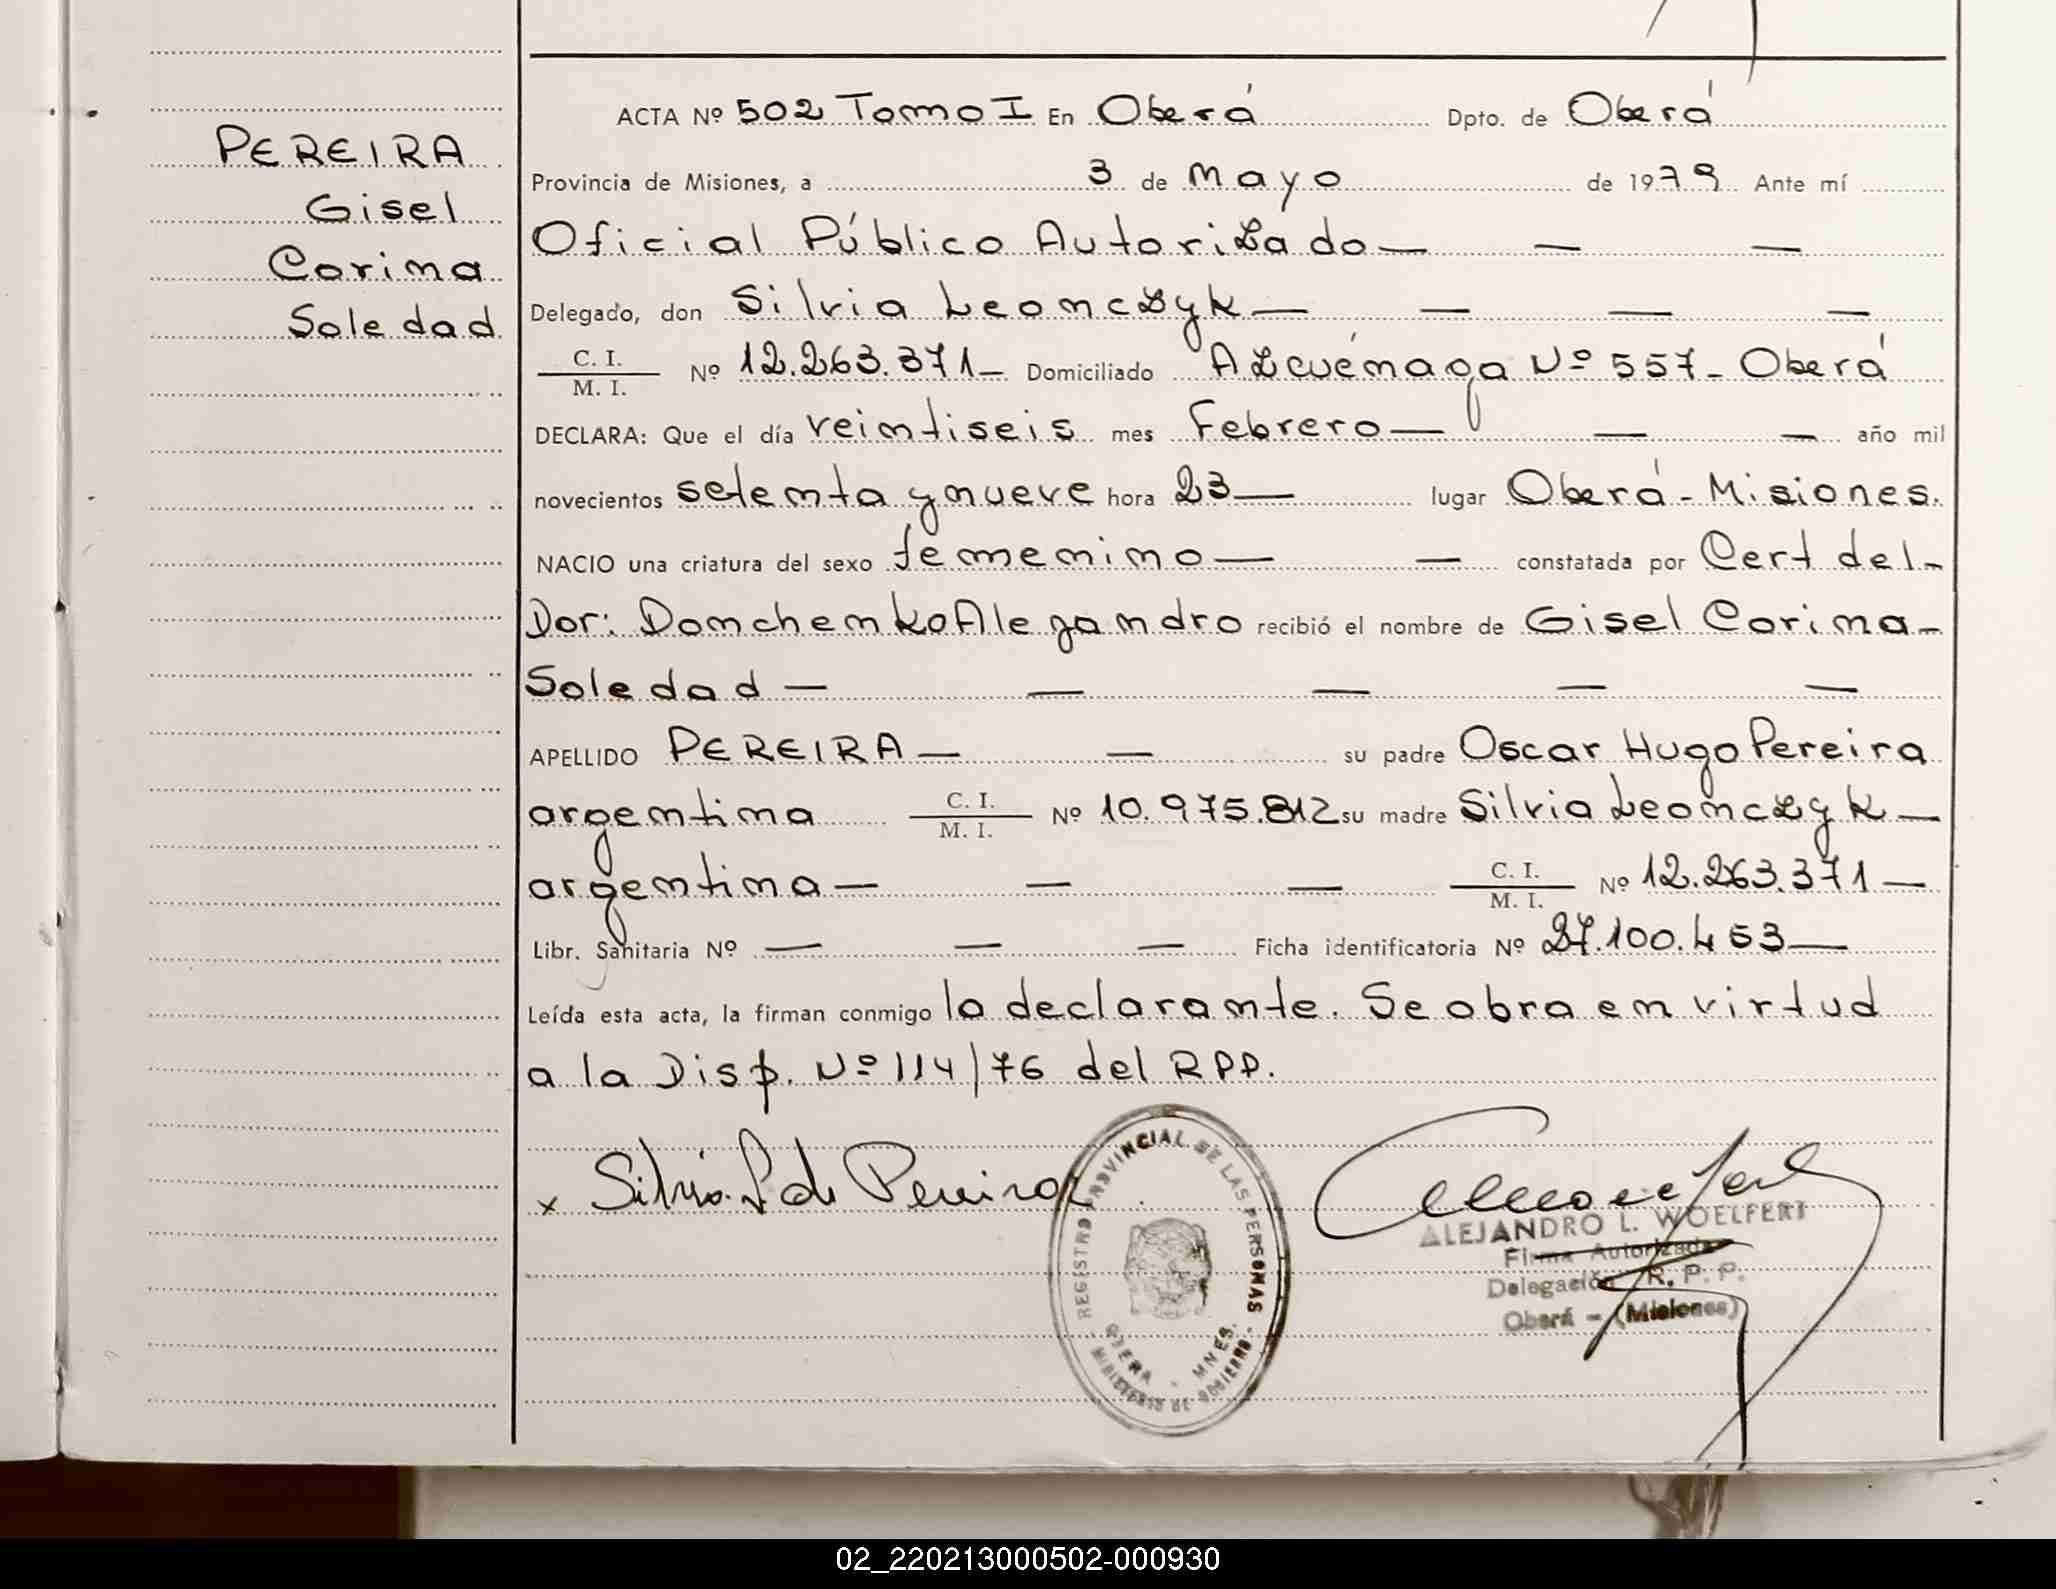 PEREIRA
Gisel
Corina
Soledad
ACTA Nº 502 Tomo I En Oberá Dpto. de Oberá
Provincia de Misiones, a 3 de Mayo de 1979 Ante mí
Oficial Público Autorizado — — —
Delegado, don Silvia Leonczyk — — — —
C. I.
M. I. Nº 12.263.371 — Domiciliado Azcuénaga Nº 557 - Oberá
DECLARA: Que el día veintiseis mes Febrero — — — año mil
novecientos setenta y nueve hora 23 — lugar Oberá - Misiones.
NACIO una criatura del sexo femenino — — constatada por Cert del -
Dor: Donchenko Alejandro recibió el nombre de Gisel Corina -
Soledad — — — — —
APELLIDO PEREIRA — — su padre Oscar Hugo Pereira
argentina C. I.
M. I. Nº 10.975.812 su madre Silvia Leonczyk —
argentina — — — C. I.
M. I. Nº 12.263.371 —
Libr. Sanitaria Nº — — — Ficha identificatoria Nº 27.100.453 —
Leída esta acta, la firman conmigo la declarante. Se obra en virtud
a la Disp. Nº 114/76 del RPP.
x Silvia L de Pereira
REGISTRO PROVINCIAL DE LAS PERSONAS
OBERA - MNES.
MINISTERIO DE GOBIERNO
ALEJANDRO L. WOELFERT
Firma Autorizada
Delegación R. P. P.
Oberá - (Misiones)
02_220213000502-000930